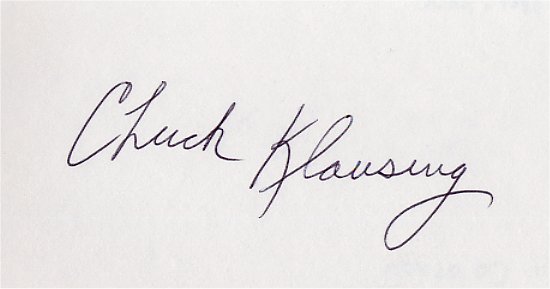 Chuck Klausing